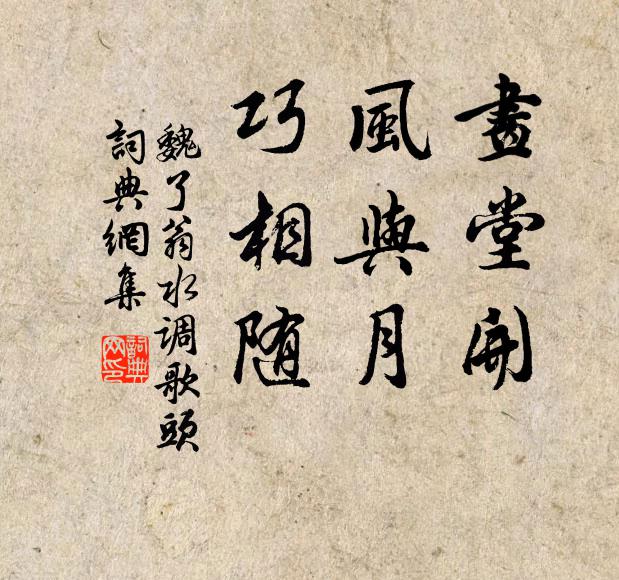 畫堂開
風與月
巧相隨
魏了翁水调歌頭
詞典網集
詞典
网印